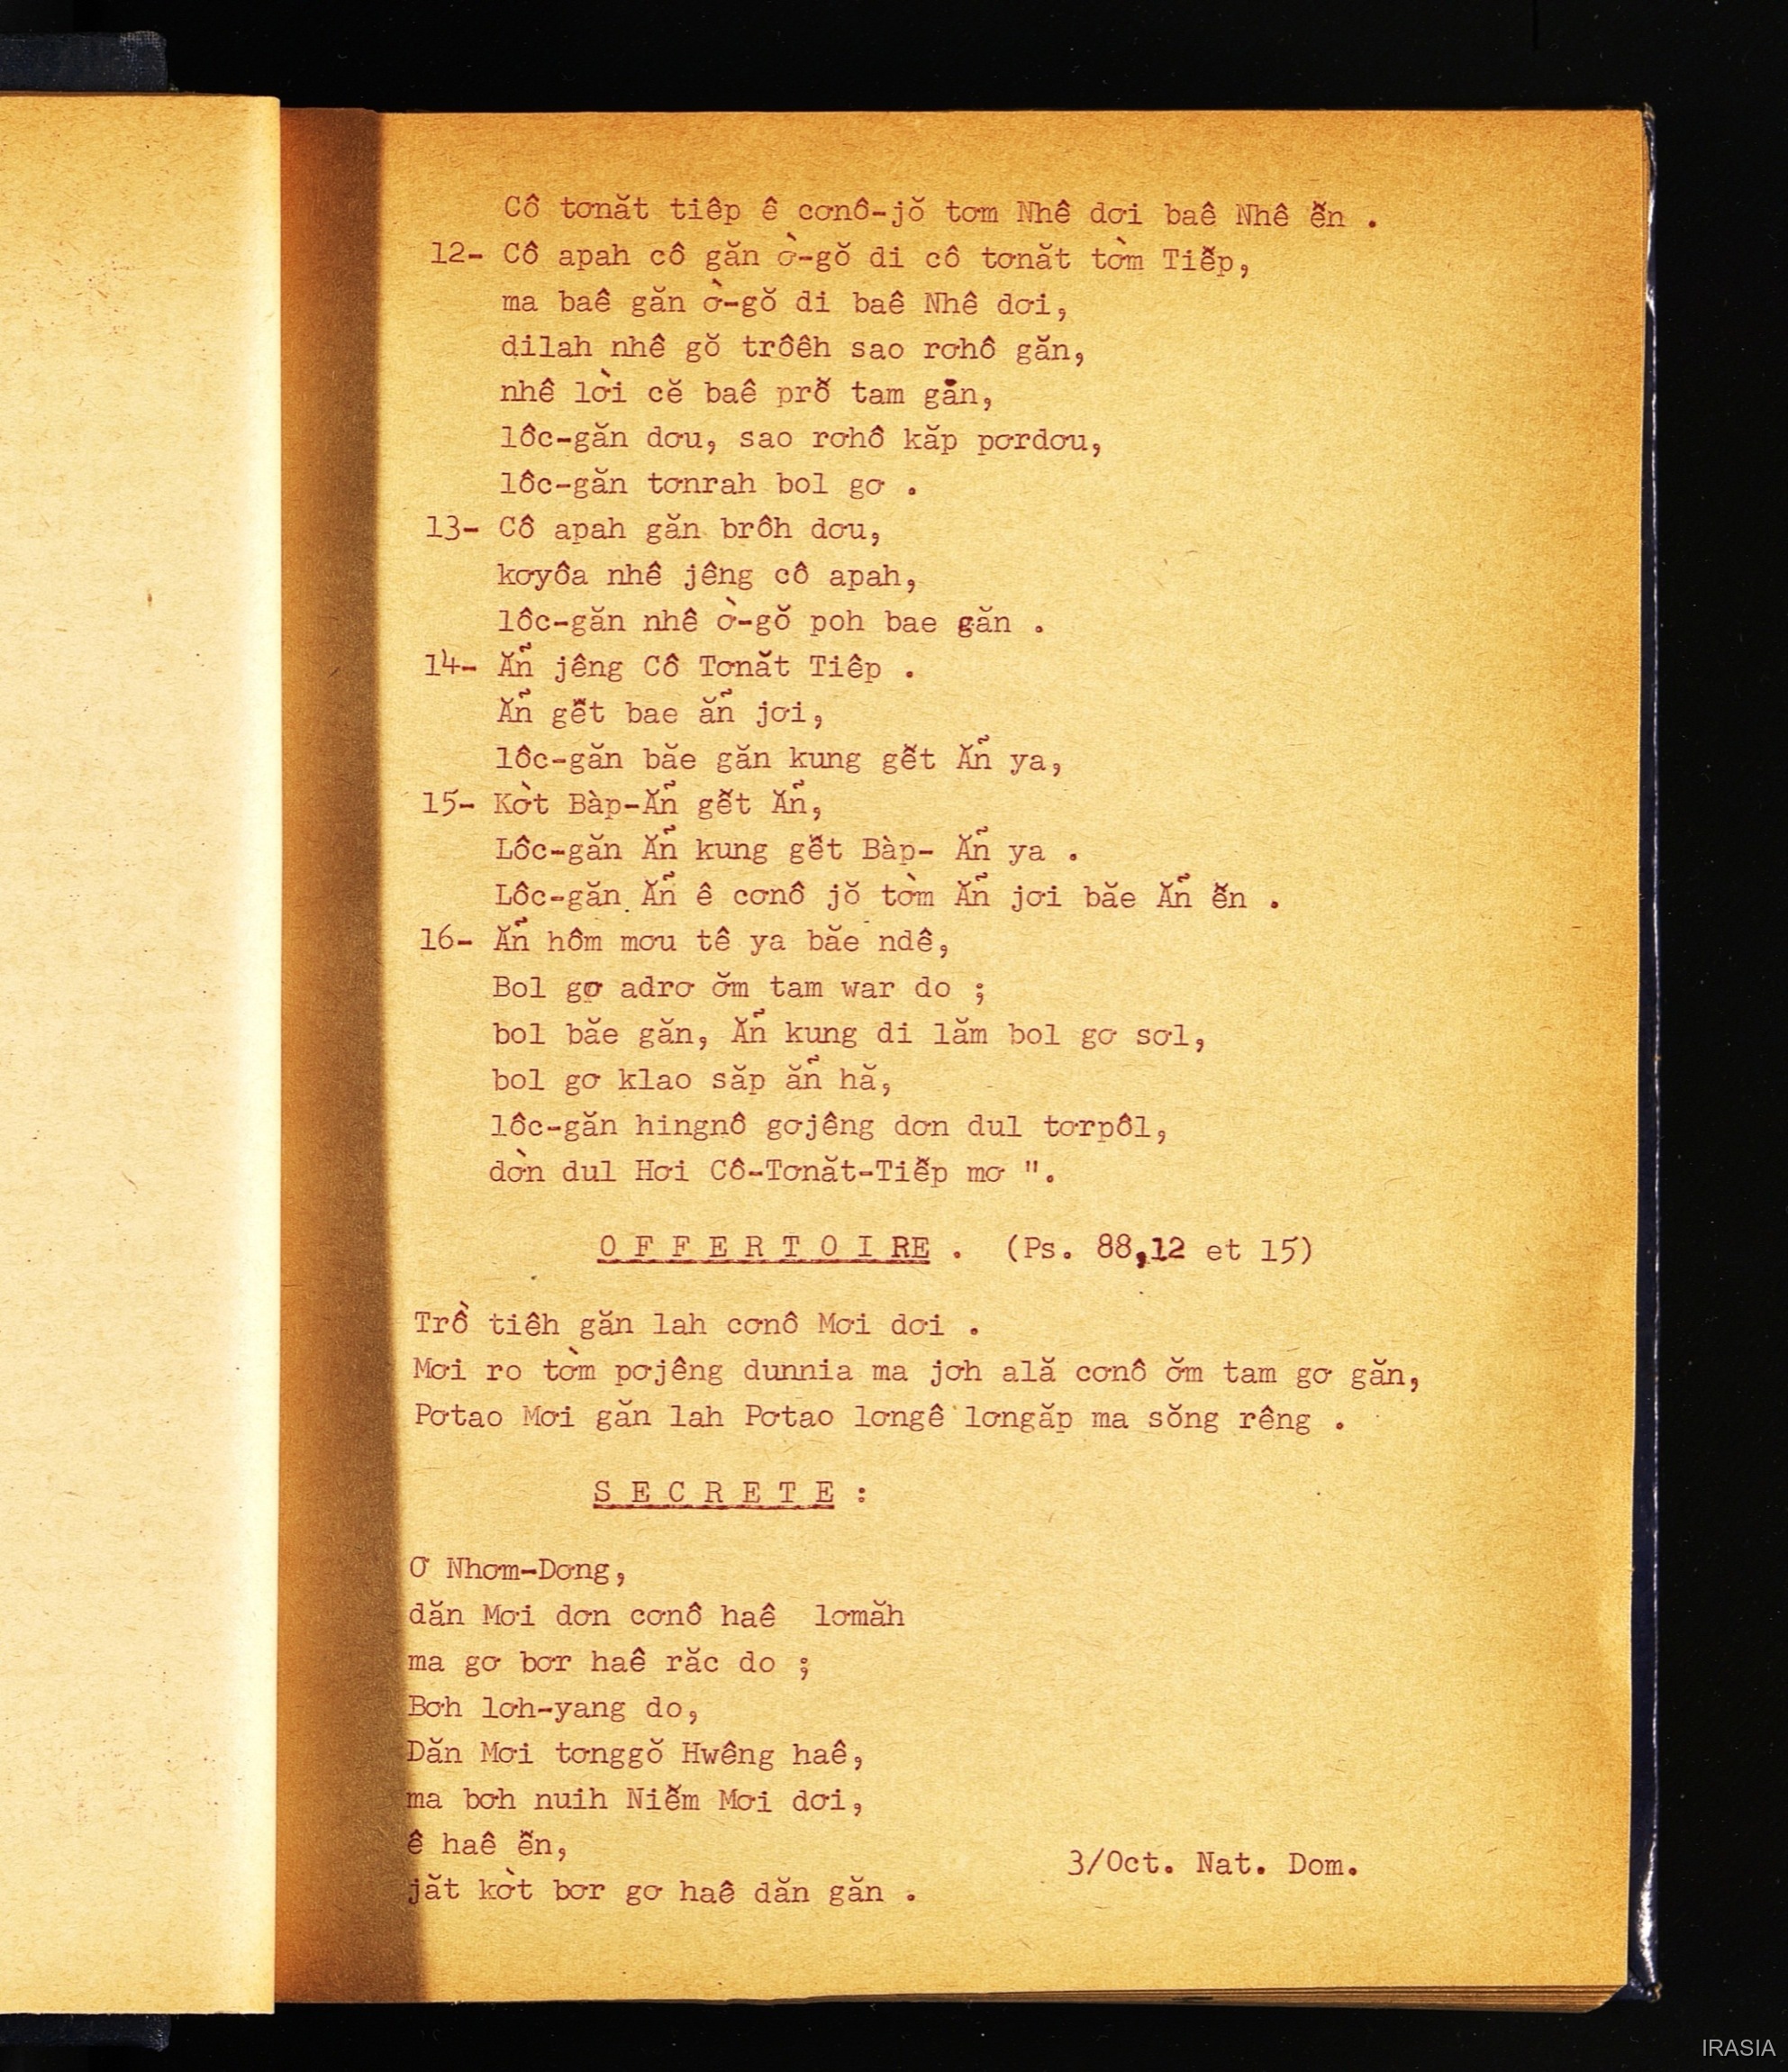 Cô tơnăt tiêp ê cơnô-jŏ tơm Nhê dơi baê Nhê ễn .
12- Cô apah cô găn ờ-gŏ di cô tơnăt tờm Tiễp,
ma baê găn ờ-gŏ di baê Nhê dơi,
dilah nhê gŏ trôêh sao rơhô găn,
nhê lời cĕ baê prỗ tam găn,
lôc-găn dơu, sao rơhô kăp pơrdơu,
lôc-găn tơnrah bol gơ .
13- Cô apah găn brôh dơu,
kơyôa nhê jêng cô apah,
lôc-găn nhê ờ-gŏ poh bae găn .
14- Ẵn jêng Cô Tơnăt Tiêp .
Ẵn gễt bae ẵn jơi,
lôc-găn băe găn kung gễt Ẵn ya,
15- Kờt Bàp-Ẵn gễt Ẵn,
Lôc-găn Ẵn kung gễt Bàp- Ẵn ya .
Lôc-găn Ẵn ê cơnô jŏ tờm Ẵn jơi băe Ẵn ễn .
16- Ẵn hôm mơu tê ya băe ndê,
Bol gơ adrơ ơ̆m tam war do ;
bol băe găn, Ẵn kung di lăm bol gơ sơl,
bol gơ klao săp ẵn hă,
lôc-găn hingnô gơjêng dơn dul tơrpôl,
dờn dul Hơi Cô-Tơnăt-Tiễp mơ ".
O F F E R T O I RE . (Ps. 88,12 et 15)
Trồ tiêh găn lah cơnô Mơi dơi .
Mơi ro tờm pơjêng dunnia ma jơh ală cơnô ơ̆m tam gơ găn,
Pơtao Mơi găn lah Pơtao lơngê lơngăp ma sŏng rêng .
S E C R E T E :
Ơ Nhơm-Dơng,
dăn Mơi dơn cơnô haê lơmăh
ma gơ bơr haê răc do ;
Bơh lơh-yang do,
Dăn Mơi tơnggŏ Hwêng haê,
ma bơh nuih Niễm Mơi dơi,
ê haê ễn,
jăt kờt bơr gơ haê dăn găn .
3/Oct. Nat. Dom.
IRASIA